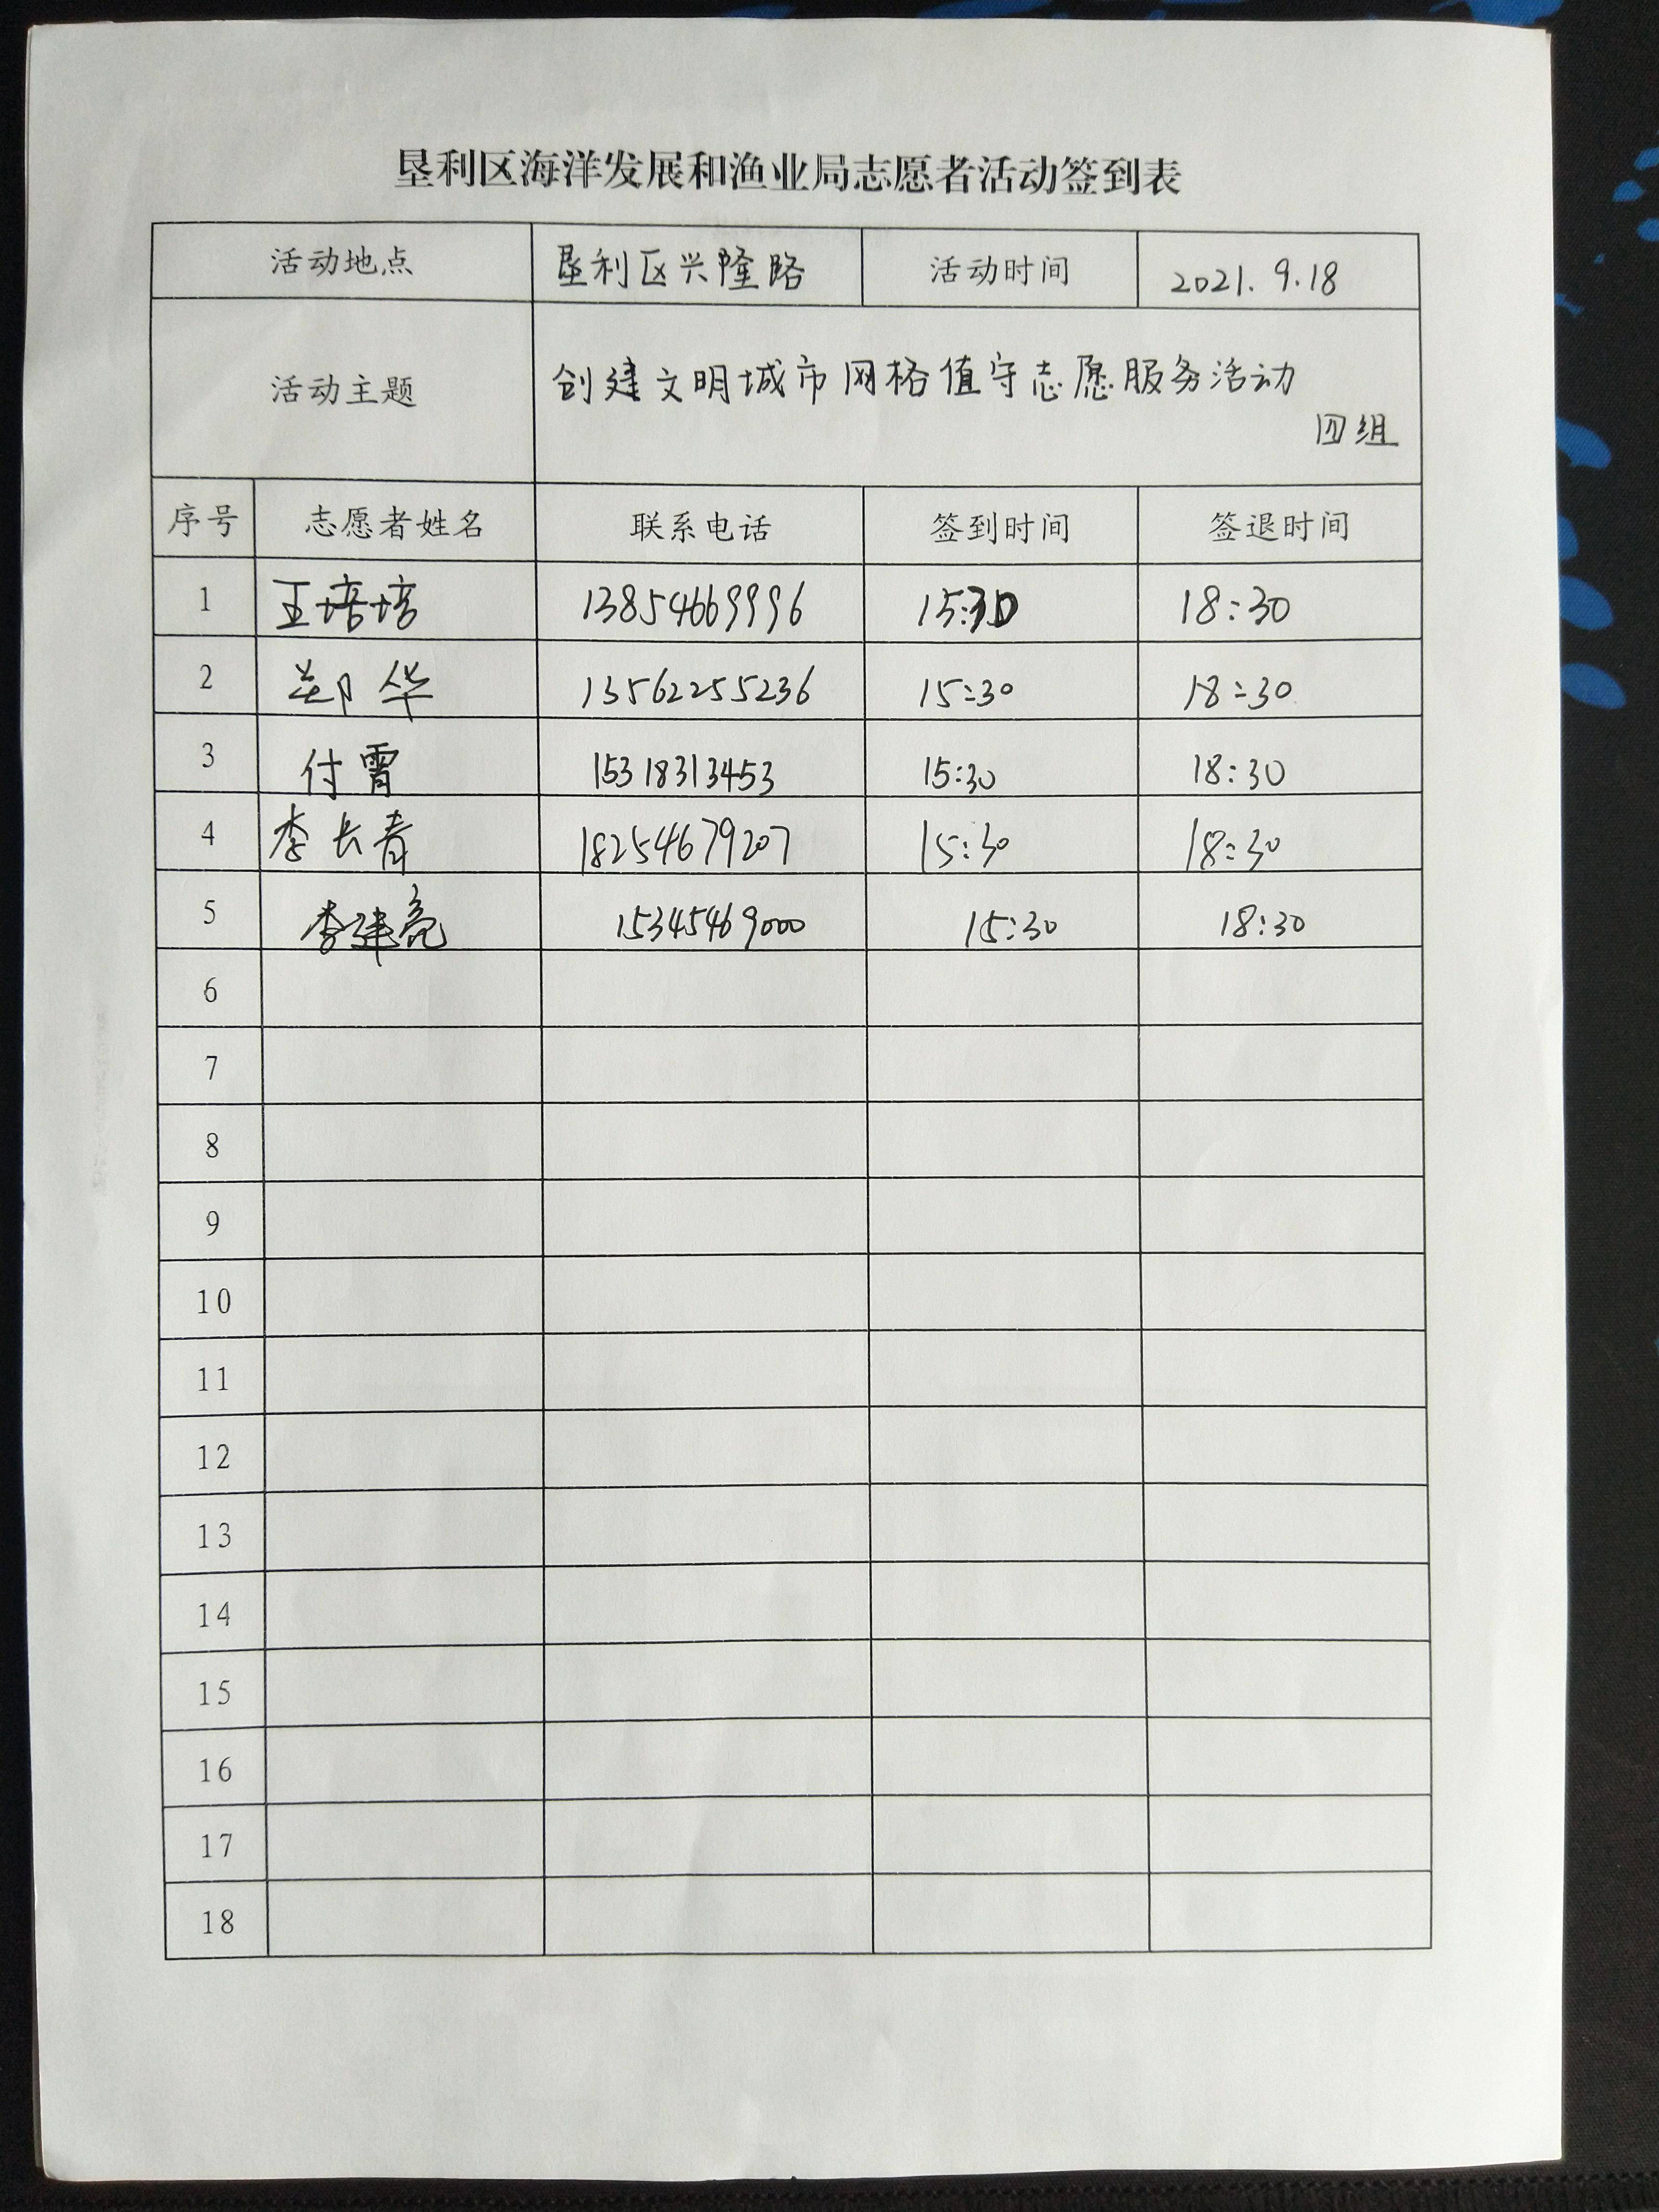 垦利区海洋发展和渔业局志愿者活动签到表
活动地点 垦利区兴隆路 活动时间 2021.9.18
活动主题 创建文明城市网格值守志愿服务活动
四组
序号 志愿者姓名 联系电话 签到时间 签退时间
1 王培培 13854669996 15:30 18:30
2 郑华 13562255236 15:30 18:30
3 付霄 15318313453 15:30 18:30
4 李长青 18254679207 15:30 18:30
5 李建亮 15345469000 15:30 18:30
6
7
8
9
10
11
12
13
14
15
16
17
18